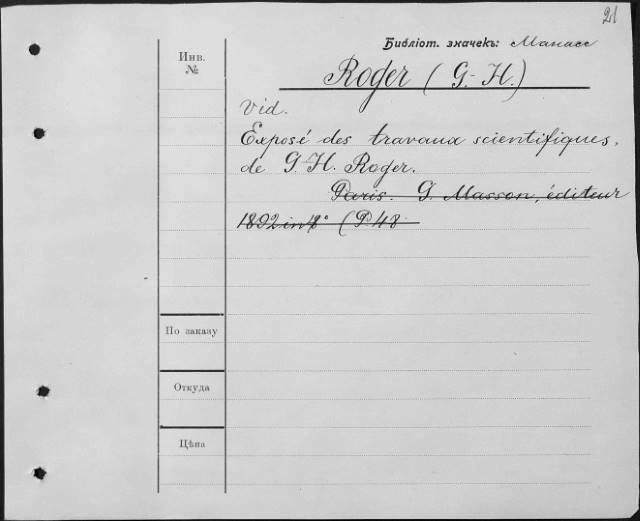 21
Библіот. значекъ: Манасс
Инв.
№
Roger (G.-H.)
Vid.
Exposé des travaux scientifiques,
de G. H. Roger.
Paris. G. Masson, éditeur
1892 in 4° (P. 48
По заказу
Откуда
Цѣна